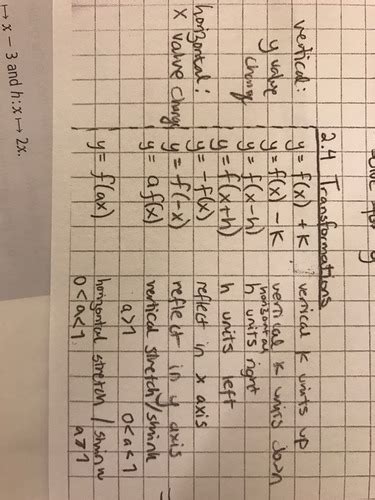 2.4 Transformations
vertical:
y value
change
y = f(x) + k vertical k units up
y = f(x) - k vertical k units down
y = f(x-h) horizontal h units right
y = f(x+h) h units left
horizontal:
x value change
y = -f(x) reflect in x axis
y = f(-x) reflect in y axis
y = a f(x) vertical stretch/shrink
a>1 0<a<1
y = f(ax) horizontal stretch / shrink
0<a<1 a>1
↦ x − 3 and h: x ↦ 2x.